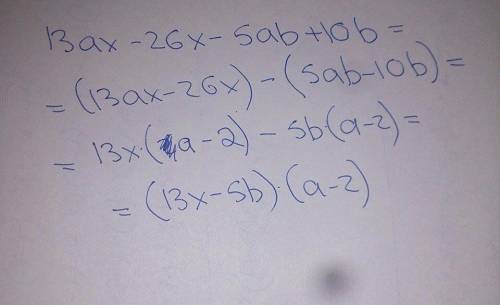 13ax-26x-5ab+10b=
=(13ax-26x)-(5ab-10b)=
=13x·(a-2)-5b·(a-2)=
=(13x-5b)·(a-2)